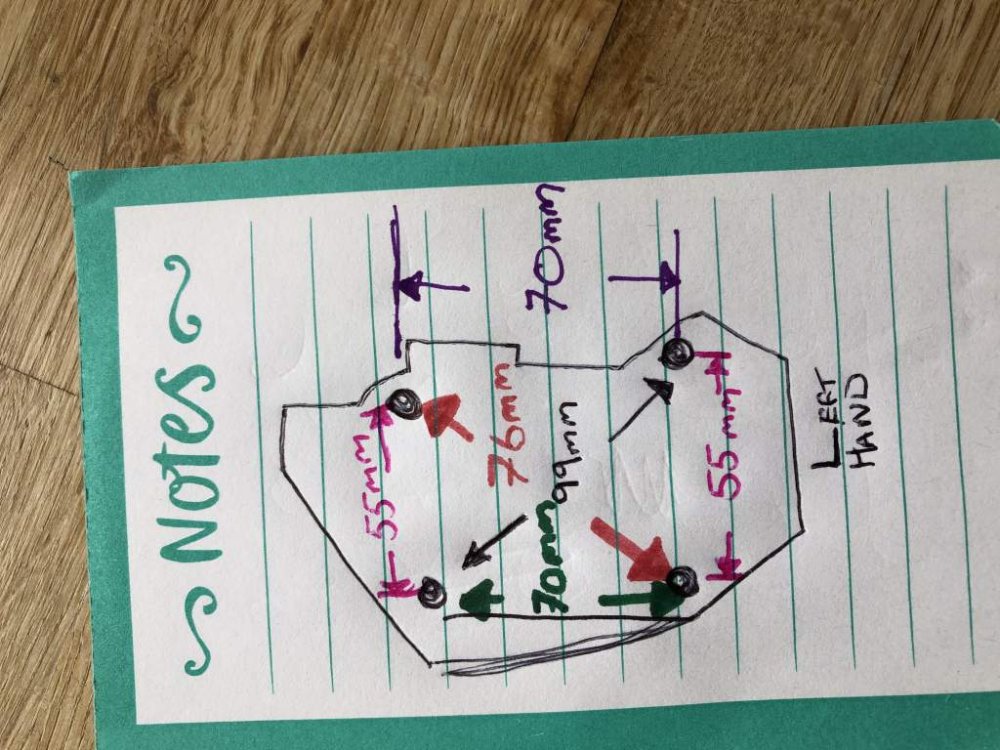 Notes
55mm
76mm
99mm
70mm
70mm
55mm
LEFT
HAND